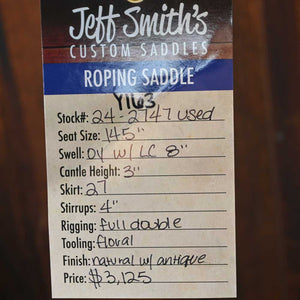 Jeff Smith's
CUSTOM SADDLES
ROPING SADDLE
Y163
Stock#: 24-2747 used
Seat Size: 14.5"
Swell: OY w/ LC 8"
Cantle Height: 3"
Skirt: 27
Stirrups: 4"
Rigging: full double
Tooling: floral
Finish: natural w/ antique
Price: $3,125